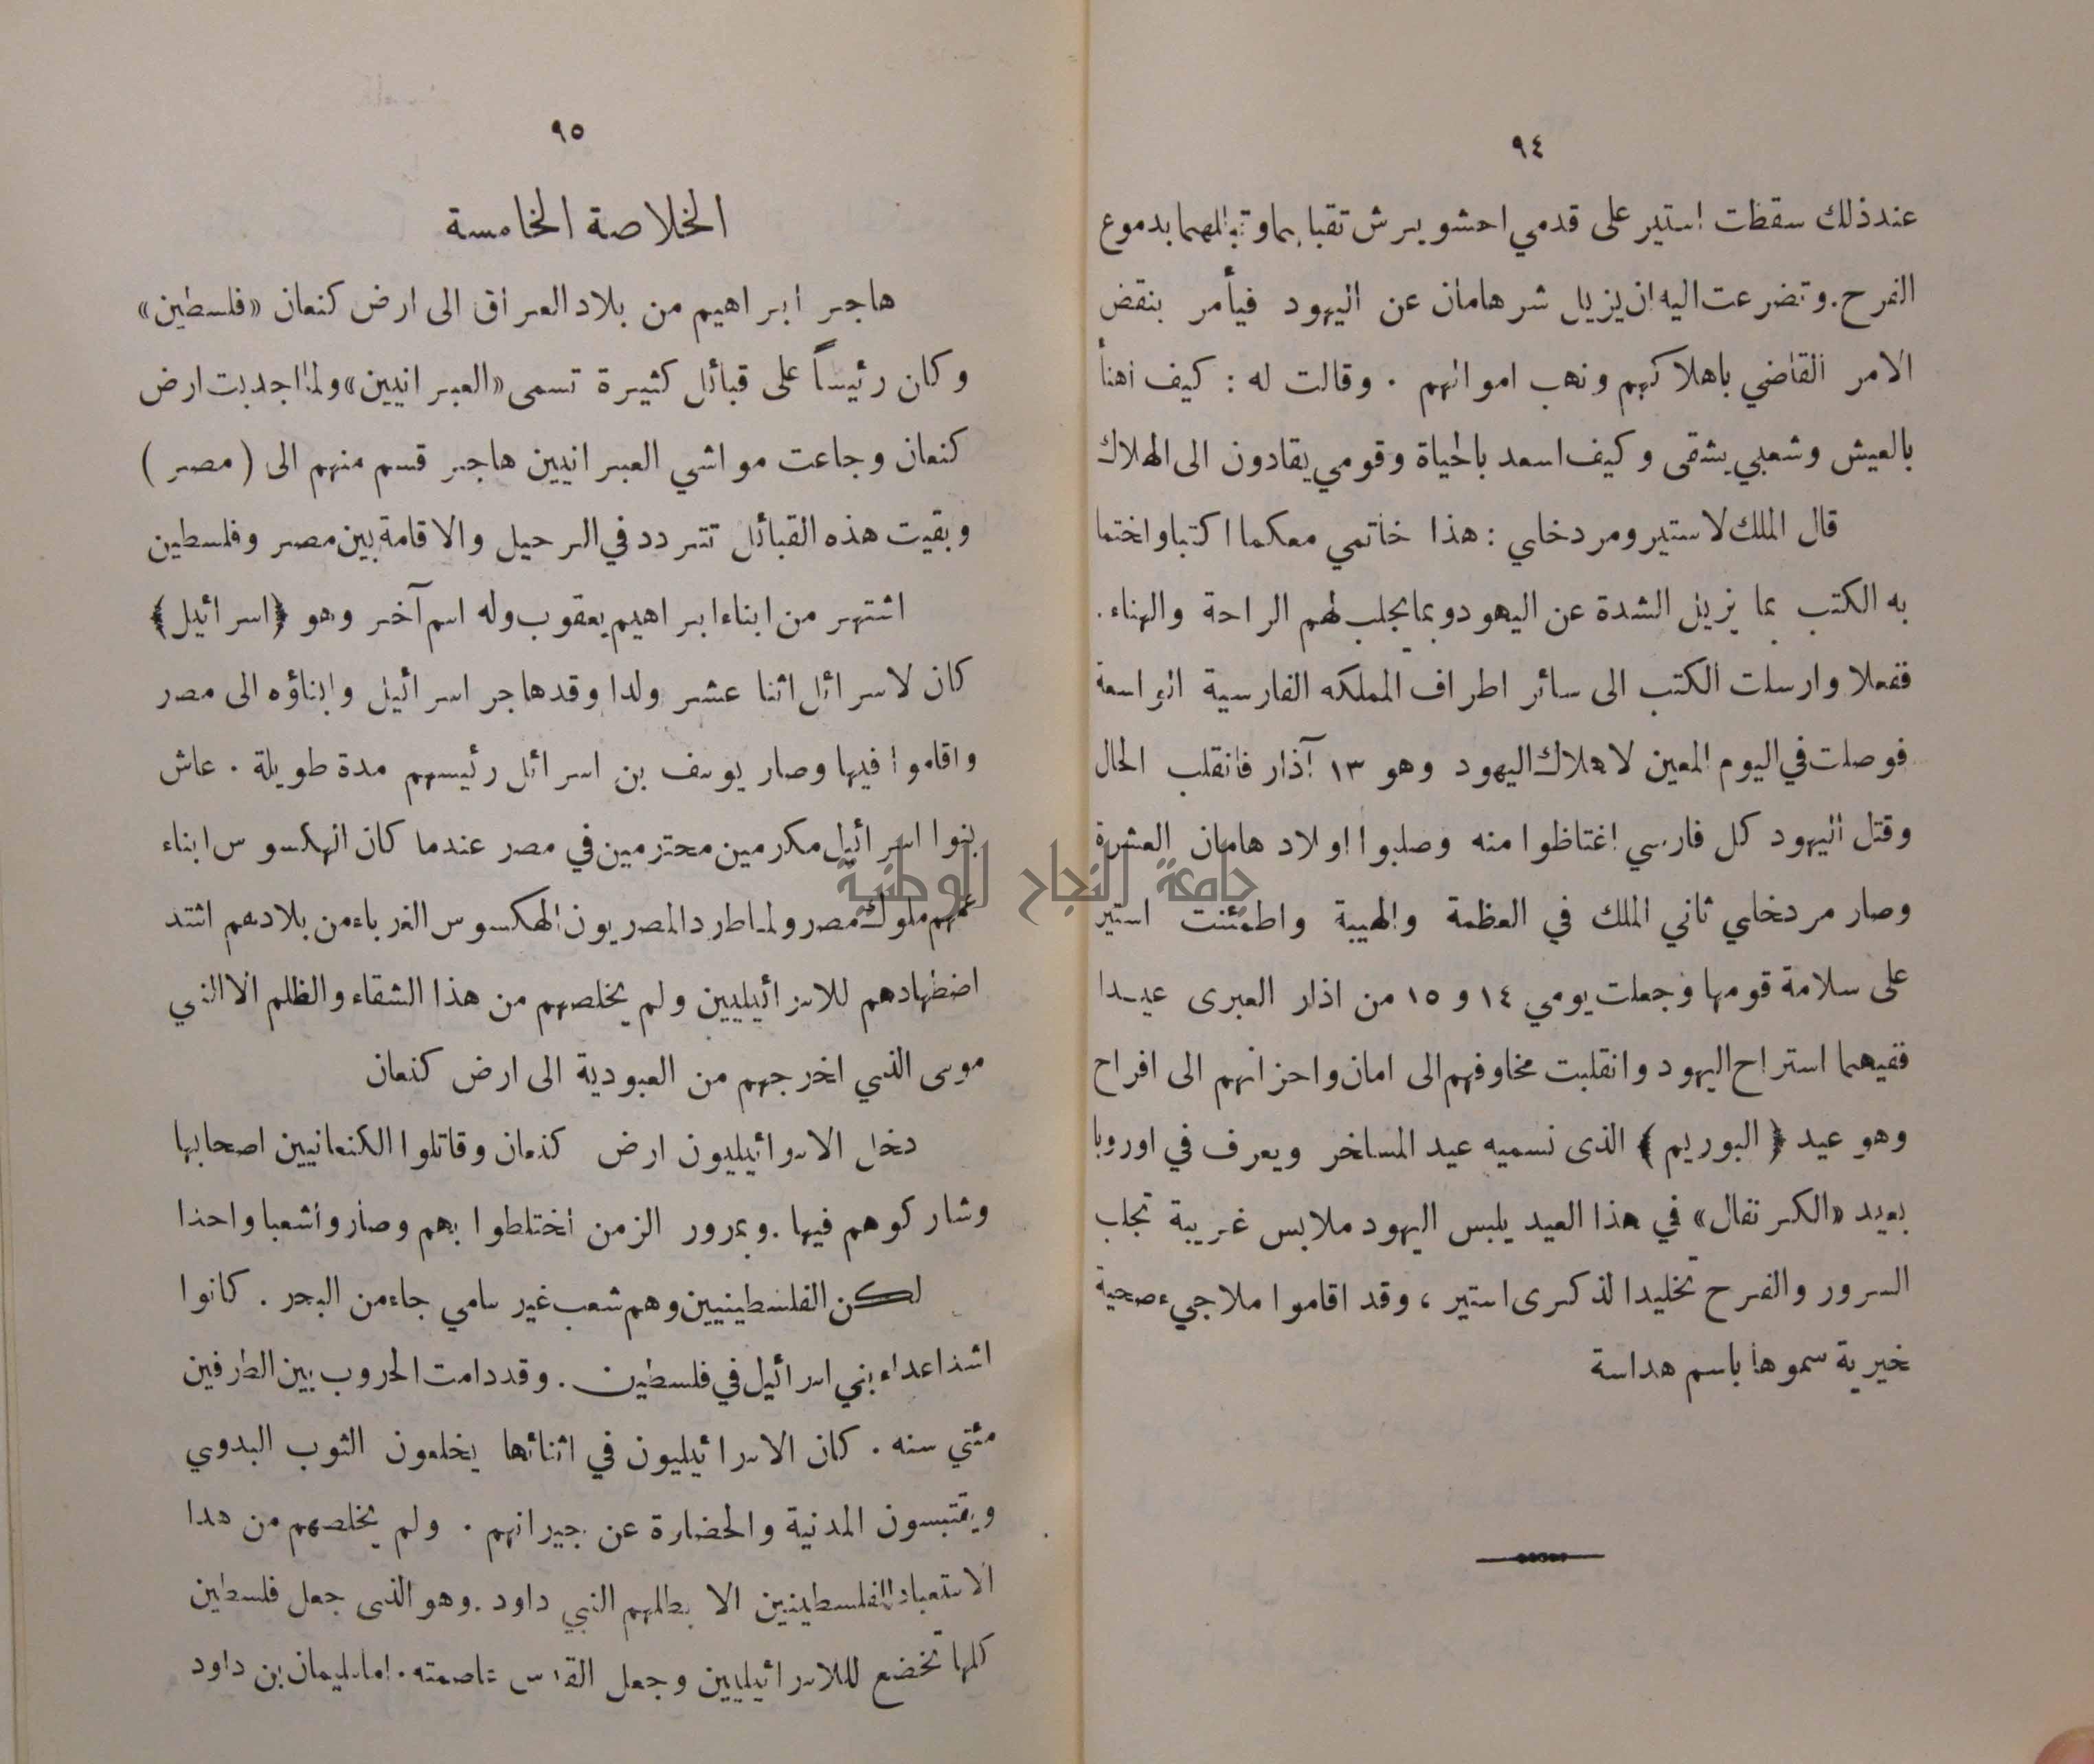 ٩٤
عند ذلك سقظت استير على قدمي احشويرش تقبلهما وتبللهما بدموع
الفرح. وتضرعت اليه ان يزيل شر هامان عن اليهود فيأمر بنقض
الامر القاضي باهلاكهم ونهب اموالهم . وقالت له : كيف اهنأ
بالعيش وشعبي يشقى وكيف اسعد بالحياة وقومي يقادون الى الهلاك
قال الملك لاستير ومردخاي : هذا خاتمي معكما اكتبا واختما
به الكتب بما يزيل الشدة عن اليهود وبما يجلب لهم الراحة والهناء.
ففعلا وارسلت الكتب الى سائر اطراف المملكه الفارسية الواسعة
فوصلت في اليوم المعين لاهلاك اليهود وهو ١٣ آذار فانقلب الحال
وقتل اليهود كل فارسي اغتاظوا منه وصلبوا اولاد هامان العشرة
وصار مردخاي ثاني الملك في العظمة والهيبة واطمئنت استير
على سلامة قومها وجعلت يومي ١٤ و ١٥ من اذار العبرى عيدا
ففيهما استراح اليهود وانقلبت مخاوفهم الى امان واحزانهم الى افراح
وهو عيد ﴿البوريم﴾ الذى نسميه عيد المساخر ويعرف في اوروبا
بعيد «الكرنفال» في هذا العيد يلبس اليهود ملابس غريبة تجلب
السرور والفرح تخليدا لذكرى استير ، وقد اقاموا ملاجيء صحية
خيرية سموها باسم هداسة
٩٥
الخلاصة الخامسة
هاجر ابراهيم من بلاد العراق الى ارض كنعان «فلسطين»
وكان رئيساً على قبائل كثيرة تسمى «العبرانيين» ولما اجدبت ارض
كنعان وجاعت مواشي العبرانيين هاجر قسم منهم الى (مصر)
وبقيت هذه القبائل تتردد في الرحيل والاقامة بين مصر وفلسطين
اشتهر من ابناء ابراهيم يعقوب وله اسم آخر وهو ﴿اسرائيل﴾
كان لاسرائل اثنا عشر ولدا وقد هاجر اسرائيل وابناؤه الى مصر
واقاموا فيها وصار يوسف بن اسرائل رئيسهم مدة طويلة . عاش
بنوا اسرائيل مكرمين محترمين في مصر عندما كان الهكسوس ابناء
عمهم ملوك مصر ولما طرد المصريون الهكسوس الغرباء من بلادهم اشتد
اضطهادهم للاسرائيليين ولم يخلصهم من هذا الشقاء والظلم الا النبي
موسى الذي اخرجهم من العبودية الى ارض كنعان
دخل الاسرائيليون ارض كنعان وقاتلوا الكنعانيين اصحابها
وشاركوهم فيها . وبمرور الزمن اختلطوا بهم وصاروا شعبا واحدا
لكن الفلسطينيين وهم شعب غير سامي جاء من البحر . كانوا
اشد اعداء بني اسرائيل في فلسطين . وقد دامت الحروب بين الطرفين
مئتي سنه . كان الاسرائيليون في اثنائها يخلعون الثوب البدوي
ويقتبسون المدنية والحضارة عن جيرانهم . ولم يخلصهم من هذا
الاستعباد للفلسطينيين الا بطلهم النبي داود . وهو الذى جعل فلسطين
كلها تخضع للاسرائيليين وجعل القدس عاصمته . اما سليمان بن داود
جامعة النجاح الوطنية